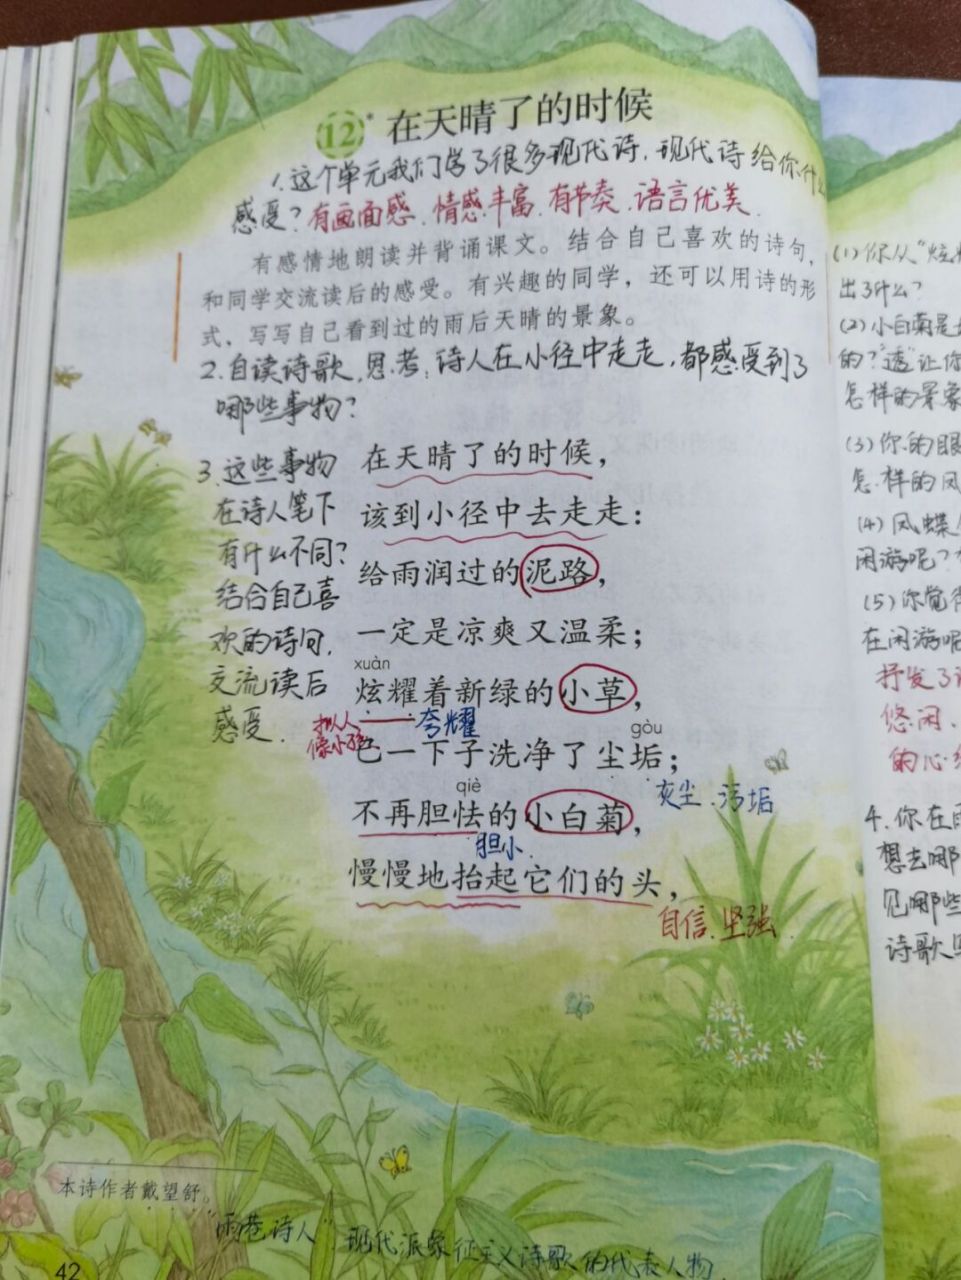 12* 在天晴了的时候
1.这个单元我们学了很多现代诗，现代诗给你什么
感受？有画面感、情感丰富、有节奏、语言优美、
有感情地朗读并背诵课文。结合自己喜欢的诗句，
和同学交流读后的感受。有兴趣的同学，还可以用诗的形
式，写写自己看到过的雨后天晴的景象。
2.自读诗歌，思考：诗人在小径中走走，都感受到了
哪些事物？
3.这些事物
在诗人笔下
有什么不同？
结合自己喜
欢的诗句，
交流读后
感受。
在天晴了的时候，
该到小径中去走走：
给雨润过的泥路，
一定是凉爽又温柔；
xuàn
炫耀着新绿的小草，
拟人 夸耀
像小孩
gòu
已一下子洗净了尘垢；
qiè
灰尘、污垢
不再胆怯的小白菊，
胆小
慢慢地抬起它们的头，
自信、坚强
本诗作者戴望舒。
"雨巷诗人" 现代派象征主义诗歌的代表人物
42
(1)你从"炫
出了什么？
(2)小白菊是
的？"透"让你
怎样的景象
(3)你的眼
怎样的风
(4)凤蝶
闲游呢？
(5)你觉得
在闲游呢
抒发了
悠闲、
的心
4.你在雨
想去哪
见哪些
诗歌